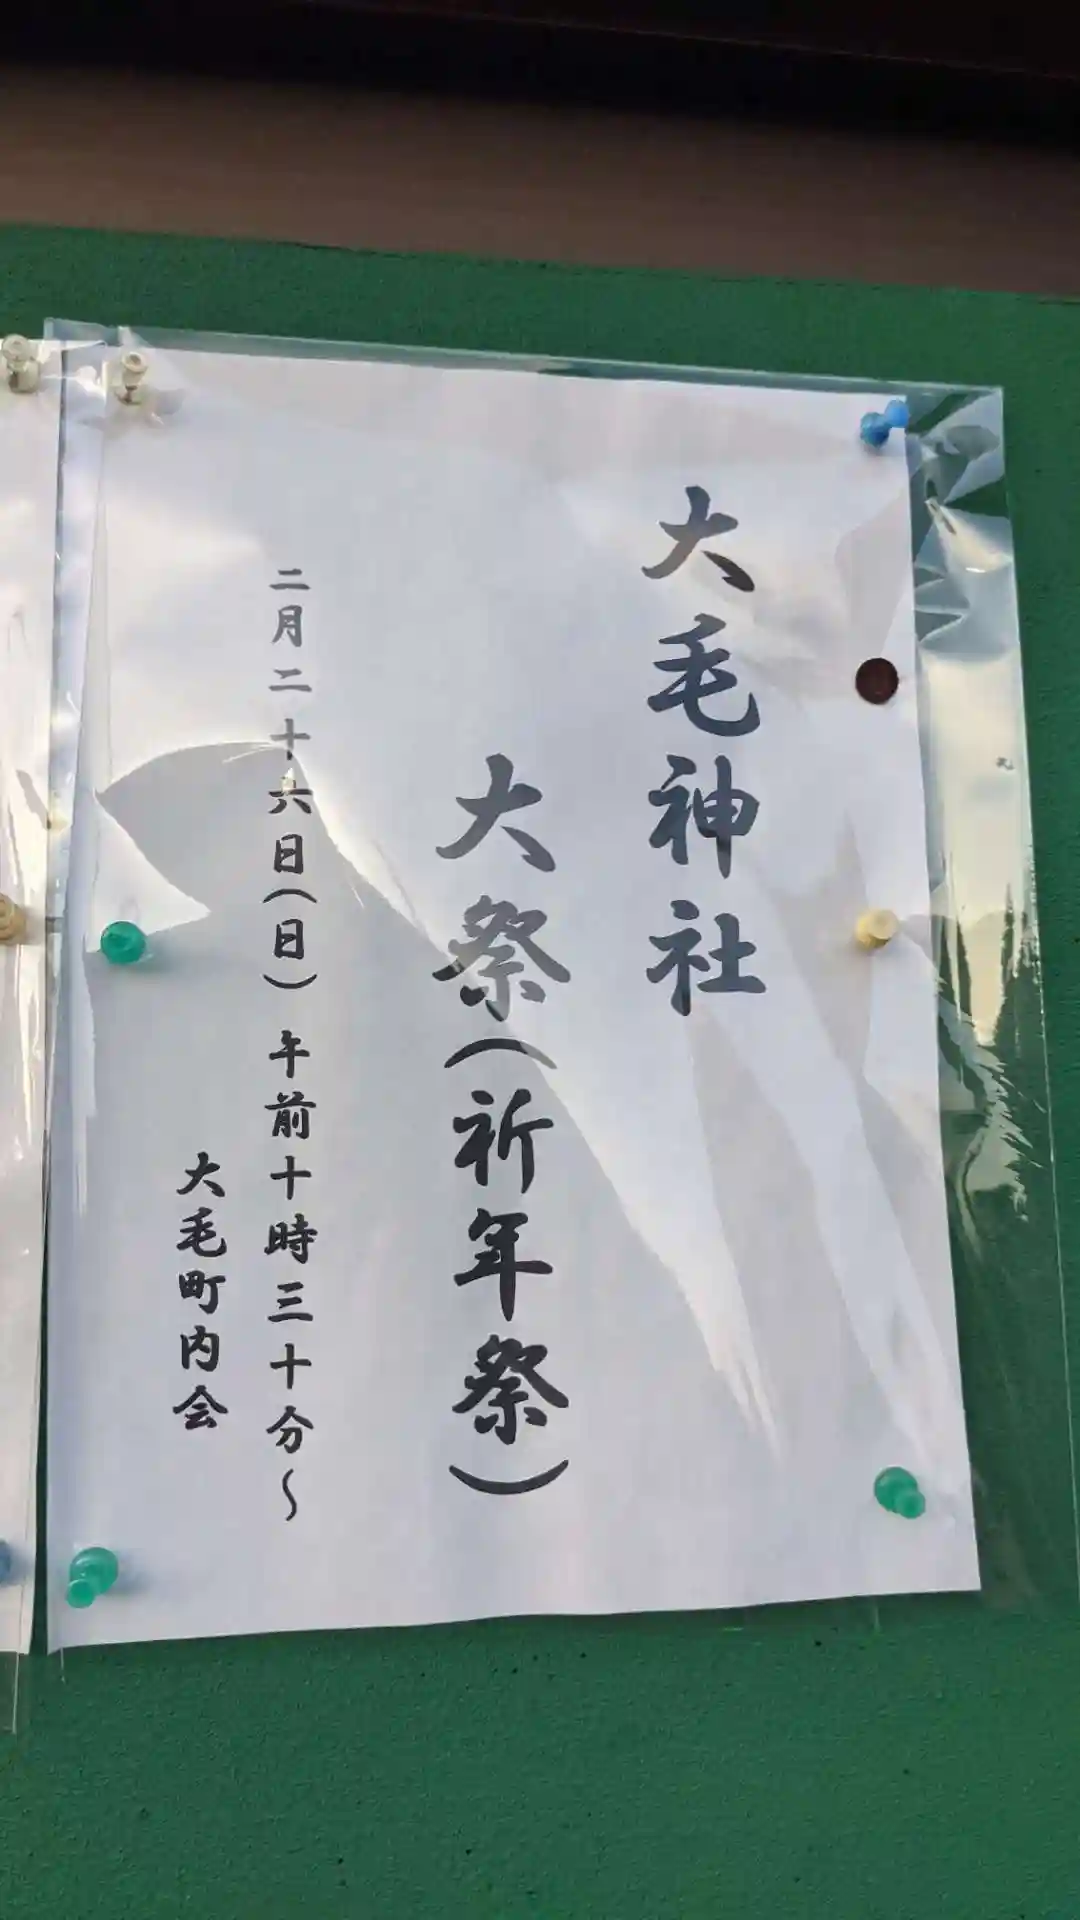 大毛神社
大祭(祈年祭)
二月二十六日(日) 午前十時三十分～
大毛町内会